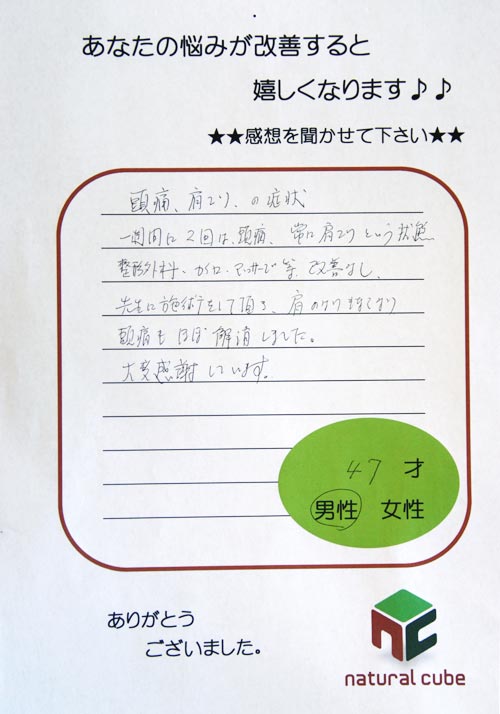 あなたの悩みが改善すると
嬉しくなります♪♪
★★感想を聞かせて下さい★★
頭痛、肩こり、の症状
一週間に2回は、頭痛、常に肩こりという状態
整形外科、カイロ、マッサージ等、改善なし、
先生に施術をして頂き、肩のはりもなくなり
頭痛もほぼ解消しました。
大変感謝しています。
47 才
男性 女性
ありがとう
ございました。
nc
natural cube